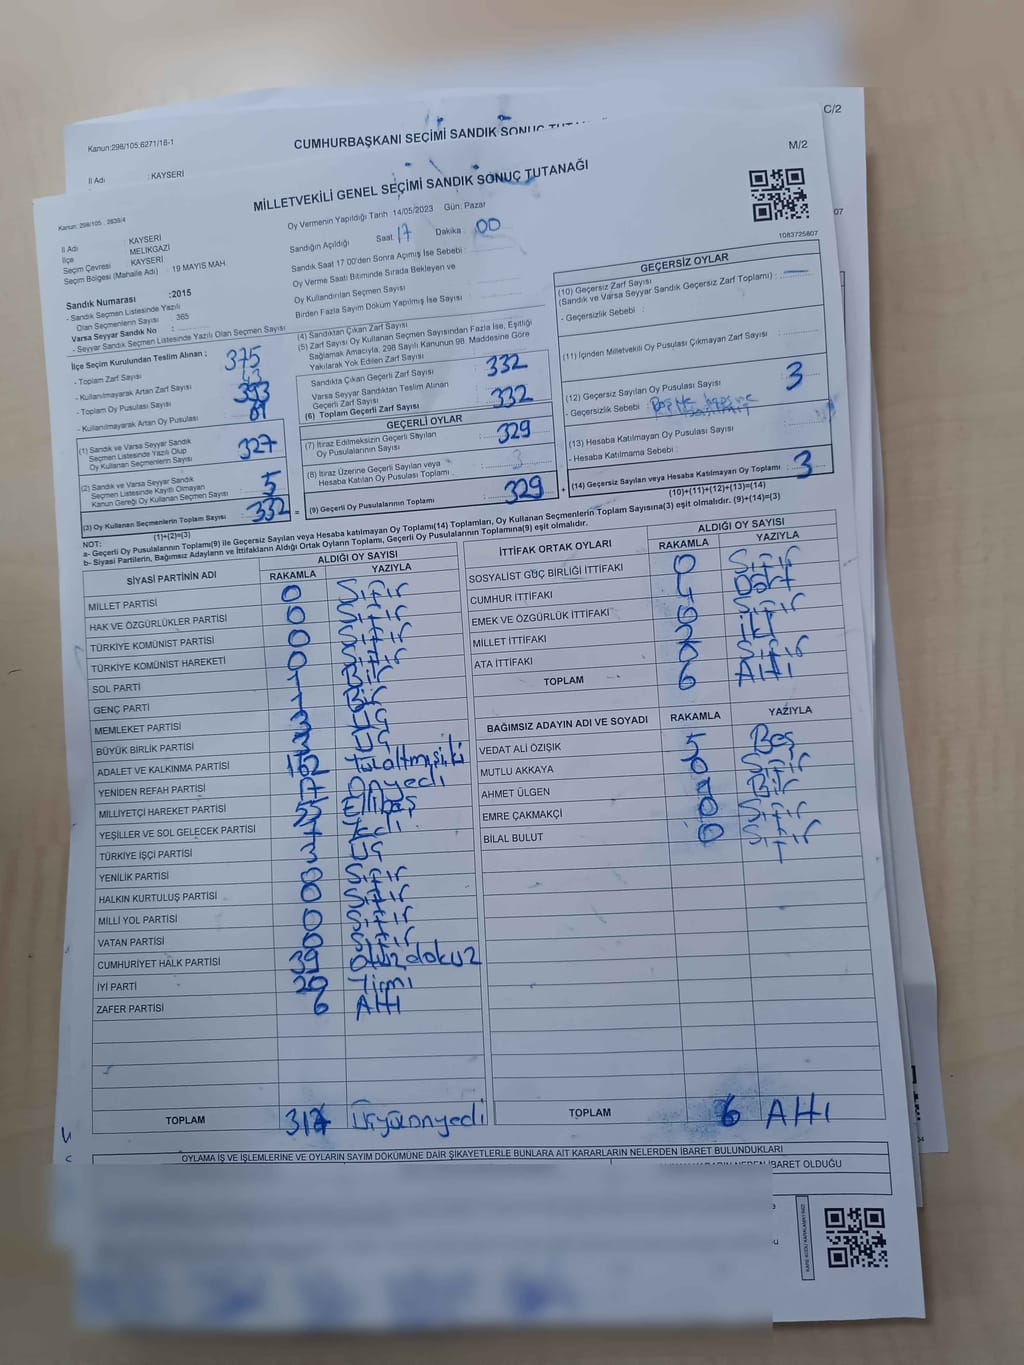 C/2
Kanun:298/105;6271/18-1
CUMHURBAŞKANI SEÇİMİ SANDIK SONUÇ
İl Adı : KAYSERİ
M/2
MİLLETVEKİLİ GENEL SEÇİMİ SANDIK SONUÇ TUTANAĞI
Kanun: 298/105 , 2839/4
07
1083725807
Oy Vermenin Yapıldığı Tarih :14/05/2023 Gün: Pazar
İl Adı : KAYSERİ
İlçe : MELİKGAZİ
Seçim Çevresi : KAYSERİ
Seçim Bölgesi (Mahalle Adı) : 19 MAYIS MAH.
Sandığın Açıldığı Saat 17 Dakika : 00
Sandık Saat 17:00'den Sonra Açılmış İse Sebebi :
Oy Verme Saati Bitiminde Sırada Bekleyen ve
Oy Kullandırılan Seçmen Sayısı
Birden Fazla Sayım Döküm Yapılmış İse Sayısı
Sandık Numarası :2015
- Sandık Seçmen Listesinde Yazılı
Olan Seçmenlerin Sayısı : 365
Varsa Seyyar Sandık No :
- Seyyar Sandık Seçmen Listesinde Yazılı Olan Seçmen Sayısı
İlçe Seçim Kurulundan Teslim Alınan ;
- Toplam Zarf Sayısı 375
- Kullanılmayarak Artan Zarf Sayısı 43
- Toplam Oy Pusulası Sayısı 393
- Kullanılmayarak Artan Oy Pusulası 61
(1) Sandık ve Varsa Seyyar Sandık
Seçmen Listesinde Yazılı Olup
Oy Kullanan Seçmenlerin Sayısı 327
(2) Sandık ve Varsa Seyyar Sandık
Seçmen Listesinde Kayıtlı Olmayan
Kanun Gereği Oy Kullanan Seçmen Sayısı 5
(3) Oy Kullanan Seçmenlerin Toplam Sayısı 332 =
(1)+(2)=(3)
(4) Sandıktan Çıkan Zarf Sayısı
(5) Zarf Sayısı Oy Kullanan Seçmen Sayısından Fazla İse, Eşitliği
Sağlamak Amacıyla, 298 Sayılı Kanunun 98. Maddesine Göre
Yakılarak Yok Edilen Zarf Sayısı
Sandıkta Çıkan Geçerli Zarf Sayısı 332
Varsa Seyyar Sandıktan Teslim Alınan
Geçerli Zarf Sayısı
(6) Toplam Geçerli Zarf Sayısı 332
GEÇERLİ OYLAR
(7) İtiraz Edilmeksizin Geçerli Sayılan
Oy Pusulalarının Sayısı 329
(8) İtiraz Üzerine Geçerli Sayılan veya
Hesaba Katılan Oy Pusulası Toplamı
(9) Geçerli Oy Pusulalarının Toplamı 329 +
GEÇERSİZ OYLAR
(10) Geçersiz Zarf Sayısı
(Sandık ve Varsa Seyyar Sandık Geçersiz Zarf Toplamı) :
- Geçersizlik Sebebi :
(11) İçinden Milletvekili Oy Pusulası Çıkmayan Zarf Sayısı
(12) Geçersiz Sayılan Oy Pusulası Sayısı 3
- Geçersizlik Sebebi :
(13) Hesaba Katılmayan Oy Pusulası Sayısı
- Hesaba Katılmama Sebebi :
(14) Geçersiz Sayılan veya Hesaba Katılmayan Oy Toplamı 3
(10)+(11)+(12)+(13)=(14)
NOT:
a- Geçerli Oy Pusulalarının Toplamı(9) ile Geçersiz Sayılan veya Hesaba katılmayan Oy Toplamı(14) Toplamları, Oy Kullanan Seçmenlerin Toplam Sayısına(3) eşit olmalıdır. (9)+(14)=(3)
b- Siyasi Partilerin, Bağımsız Adayların ve İttifakların Aldığı Ortak Oyların Toplamı, Geçerli Oy Pusulalarının Toplamına(9) eşit olmalıdır.
SİYASİ PARTİNİN ADI ALDIĞI OY SAYISI
RAKAMLA YAZIYLA
MİLLET PARTİSİ 0 Sıfır
HAK VE ÖZGÜRLÜKLER PARTİSİ 0 Sıfır
TÜRKİYE KOMÜNİST PARTİSİ 0 Sıfır
TÜRKİYE KOMÜNİST HAREKETİ 0 Sıfır
SOL PARTİ 1 Bir
GENÇ PARTİ 1 Bir
MEMLEKET PARTİSİ 3 Üç
BÜYÜK BİRLİK PARTİSİ 3 Üç
ADALET VE KALKINMA PARTİSİ 162 Yüzaltmışiki
YENİDEN REFAH PARTİSİ 17 Onyedi
MİLLİYETÇİ HAREKET PARTİSİ 55 Ellibeş
YEŞİLLER VE SOL GELECEK PARTİSİ 7 Yedi
TÜRKİYE İŞÇİ PARTİSİ 3 Üç
YENİLİK PARTİSİ 0 Sıfır
HALKIN KURTULUŞ PARTİSİ 0 Sıfır
MİLLİ YOL PARTİSİ 0 Sıfır
VATAN PARTİSİ 0 Sıfır
CUMHURİYET HALK PARTİSİ 39 Otuzdokuz
İYİ PARTİ 20 Yirmi
ZAFER PARTİSİ 6 Altı
TOPLAM 317 Üçyüzonyedi
İTTİFAK ORTAK OYLARI ALDIĞI OY SAYISI
RAKAMLA YAZIYLA
SOSYALİST GÜÇ BİRLİĞİ İTTİFAKI 0 Sıfır
CUMHUR İTTİFAKI 4 Dört
EMEK VE ÖZGÜRLÜK İTTİFAKI 0 Sıfır
MİLLET İTTİFAKI 2 İki
ATA İTTİFAKI 0 Sıfır
TOPLAM 6 Altı
BAĞIMSIZ ADAYIN ADI VE SOYADI RAKAMLA YAZIYLA
VEDAT ALİ ÖZIŞIK 5 Beş
MUTLU AKKAYA 0 Sıfır
AHMET ÜLGEN 1 Bir
EMRE ÇAKMAKÇİ 0 Sıfır
BİLAL BULUT 0 Sıfır
TOPLAM 6 Altı
OYLAMA İŞ VE İŞLEMLERİNE VE OYLARIN SAYIM DÖKÜMÜNE DAİR ŞİKAYETLERLE BUNLARA AİT KARARLARIN NELERDEN İBARET BULUNDUKLARI
İBARET OLDUĞU
04